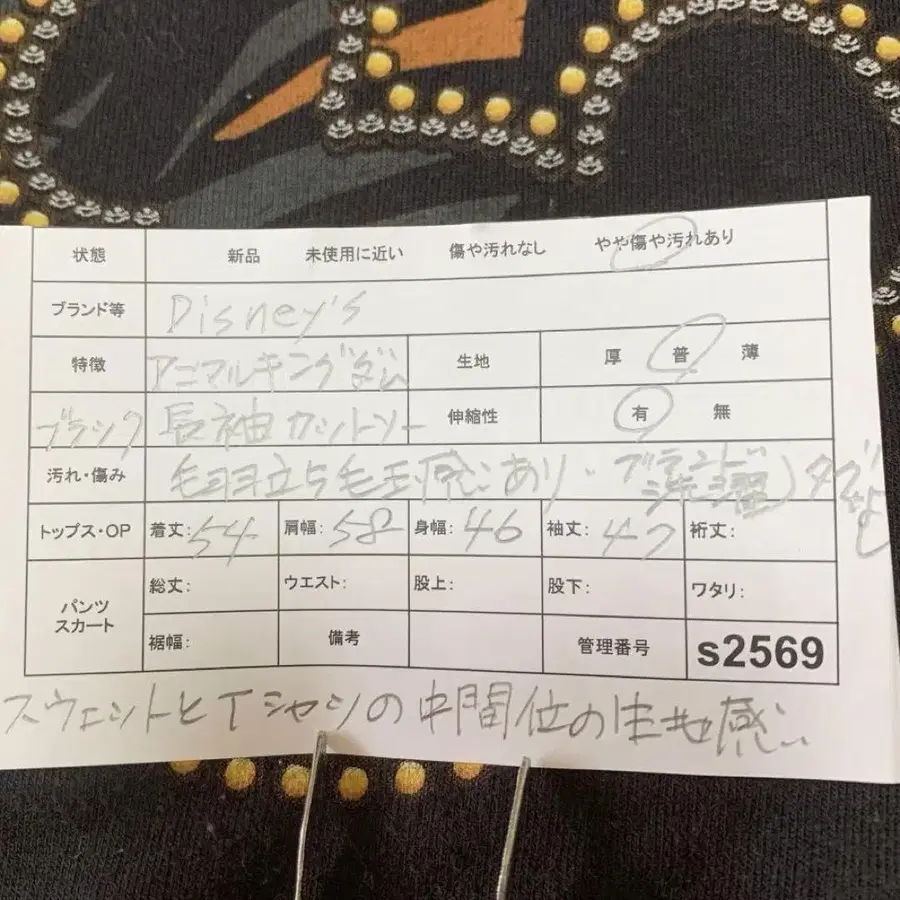 状態 新品 未使用に近い 傷や汚れなし やや傷や汚れあり
ブランド等 Disney's
特徴 アニマルキングダム 生地 厚 普 薄
ブラック 長袖カットソー 伸縮性 有 無
汚れ・傷み 毛羽立ち毛玉感あり
トップス・OP 着丈:54 肩幅:58 身幅:46 袖丈:47 裄丈:
パンツ スカート 総丈: ウエスト: 股上: 股下: ワタリ:
裾幅: 備考 管理番号 s2569
スウェットとTシャツの中間位の生地感